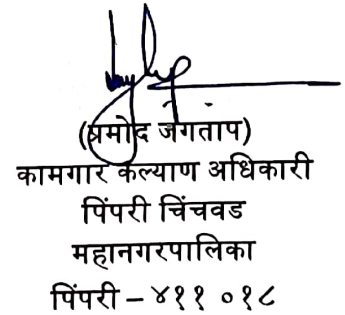 (प्रमोद जगताप)
कामगार कल्याण अधिकारी
पिंपरी चिंचवड
महानगरपालिका
पिंपरी – ४११ ०१८